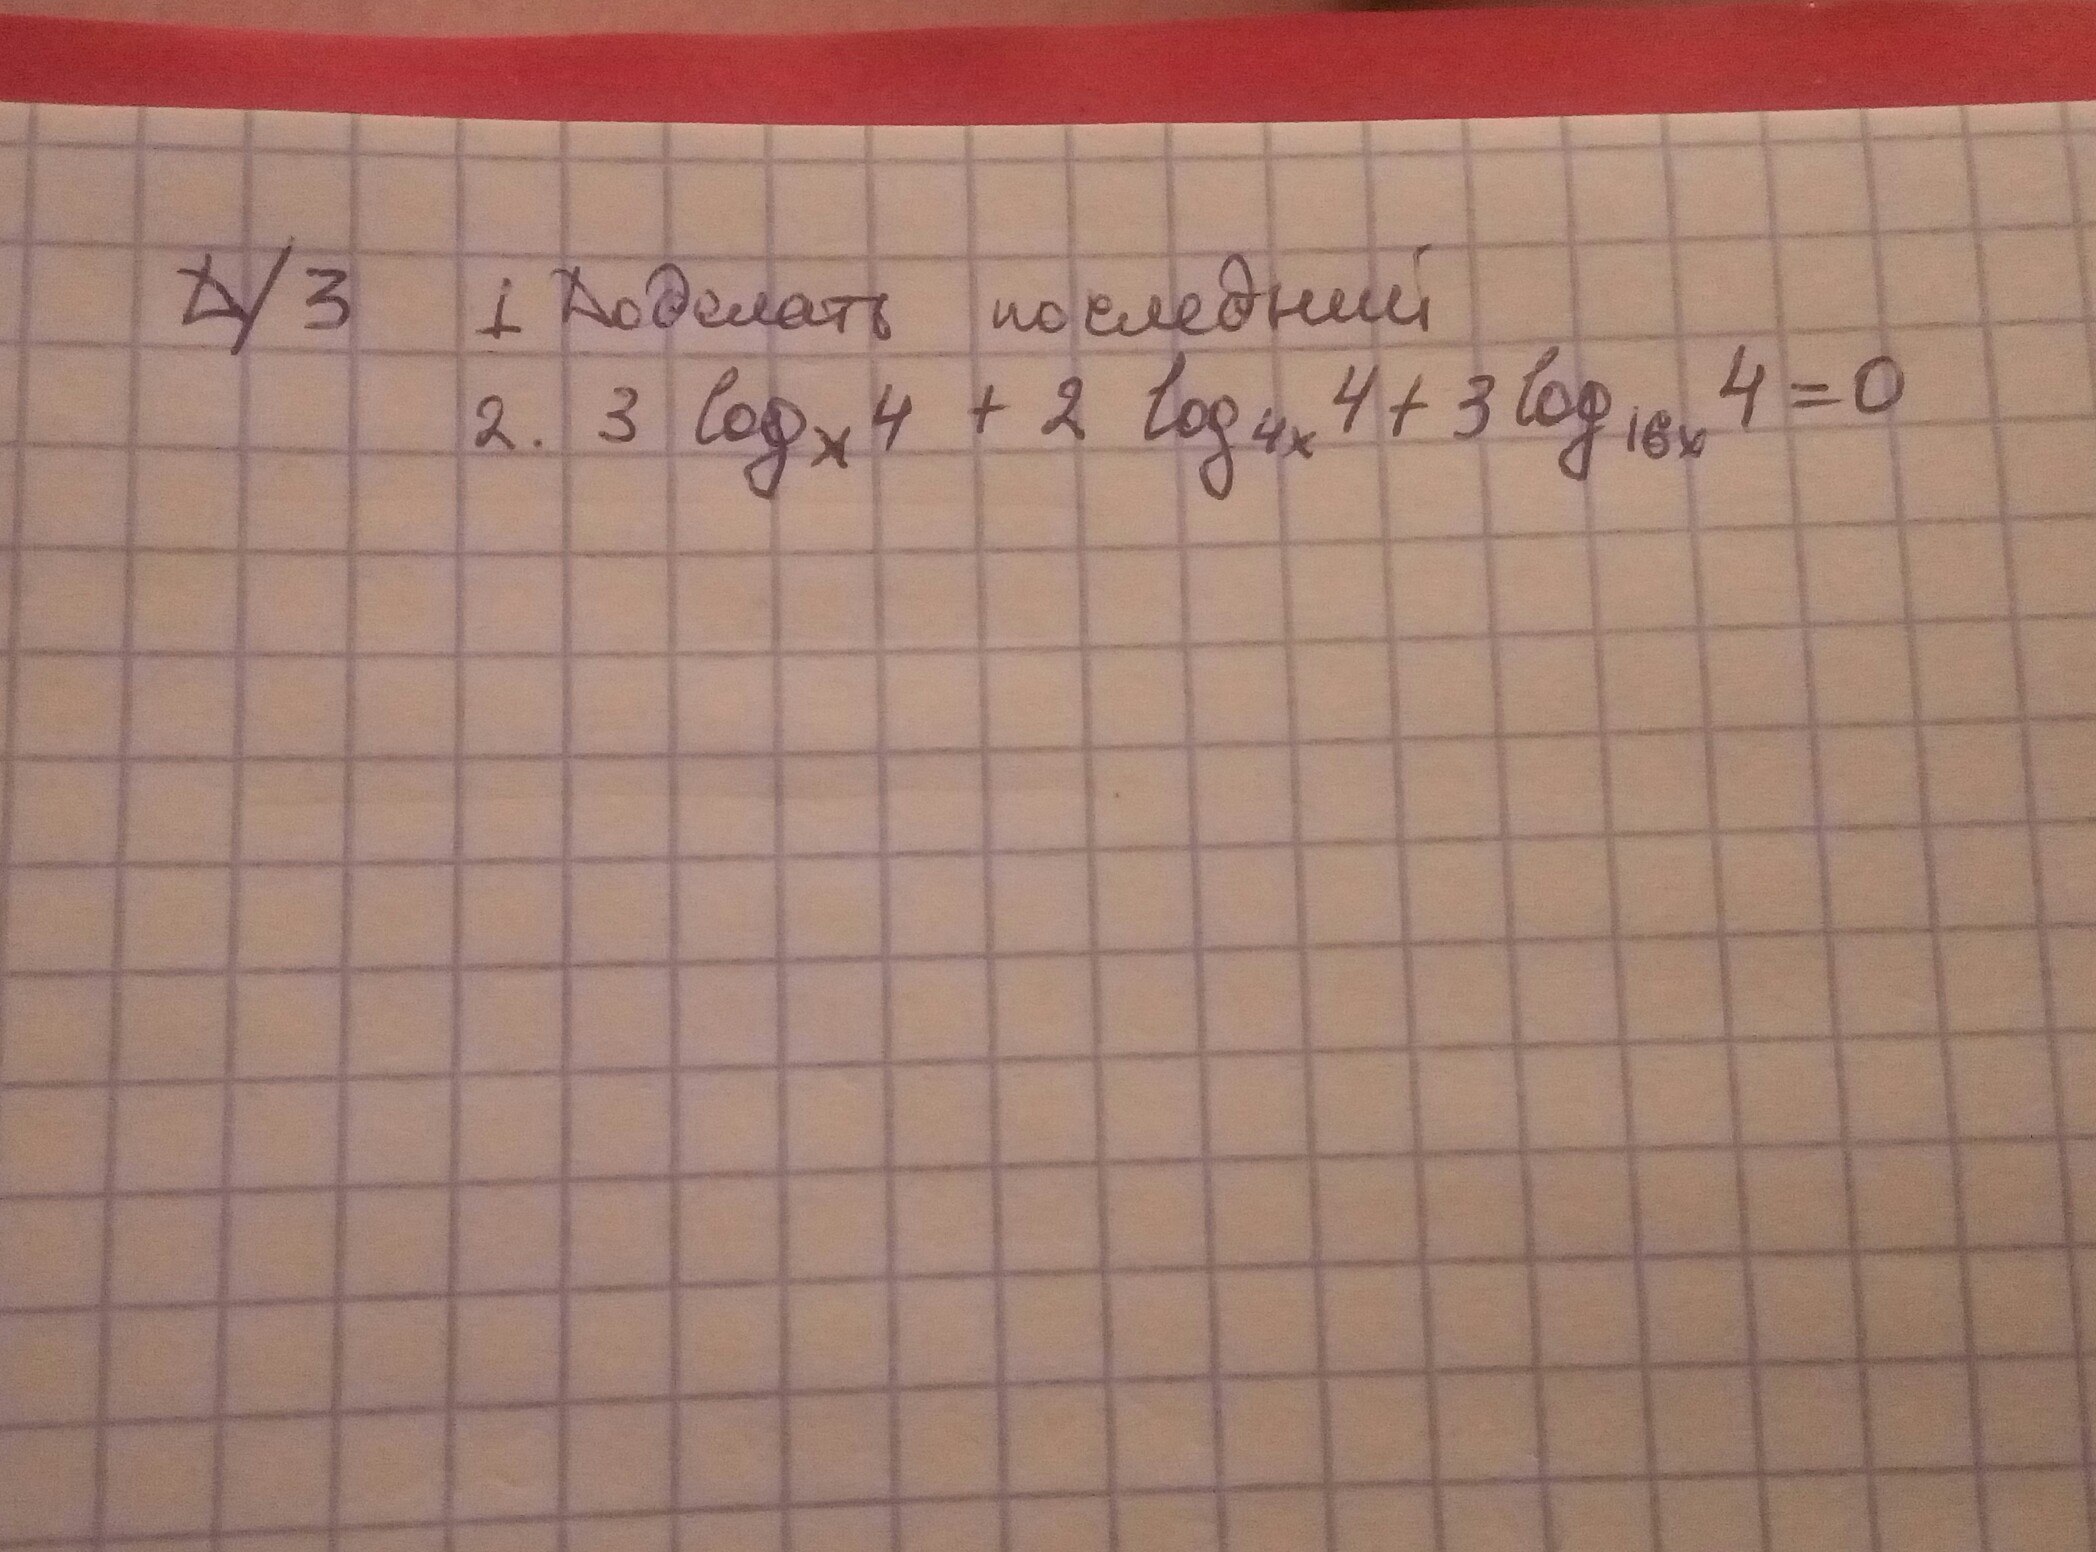 Д/З 1 Доделать последний
2. 3 log_x 4 + 2 log_4x 4 + 3 log_16x 4 = 0